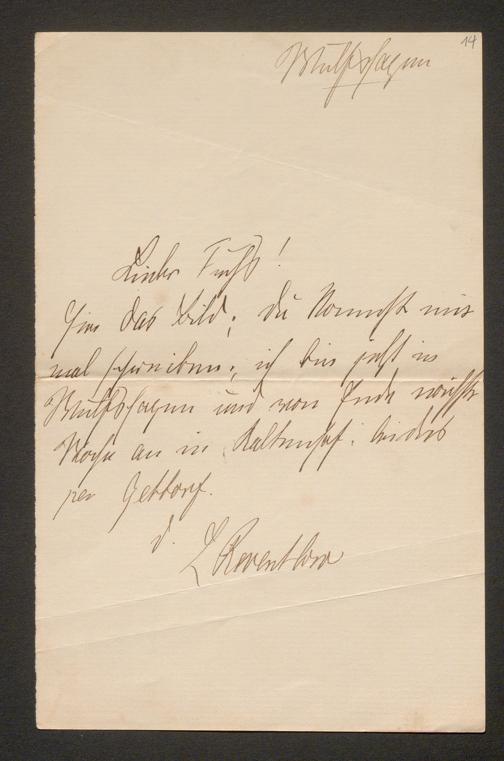 14
Wulfshagen
Lieber Fehs!
Hier das Bild; Du kannst mir
mal schreiben; ich bin jetzt in
Wulfshagen und von Ende nächster
Woche an in Kaltenhof. beides
per Gettorf.
d.
L Reventlow